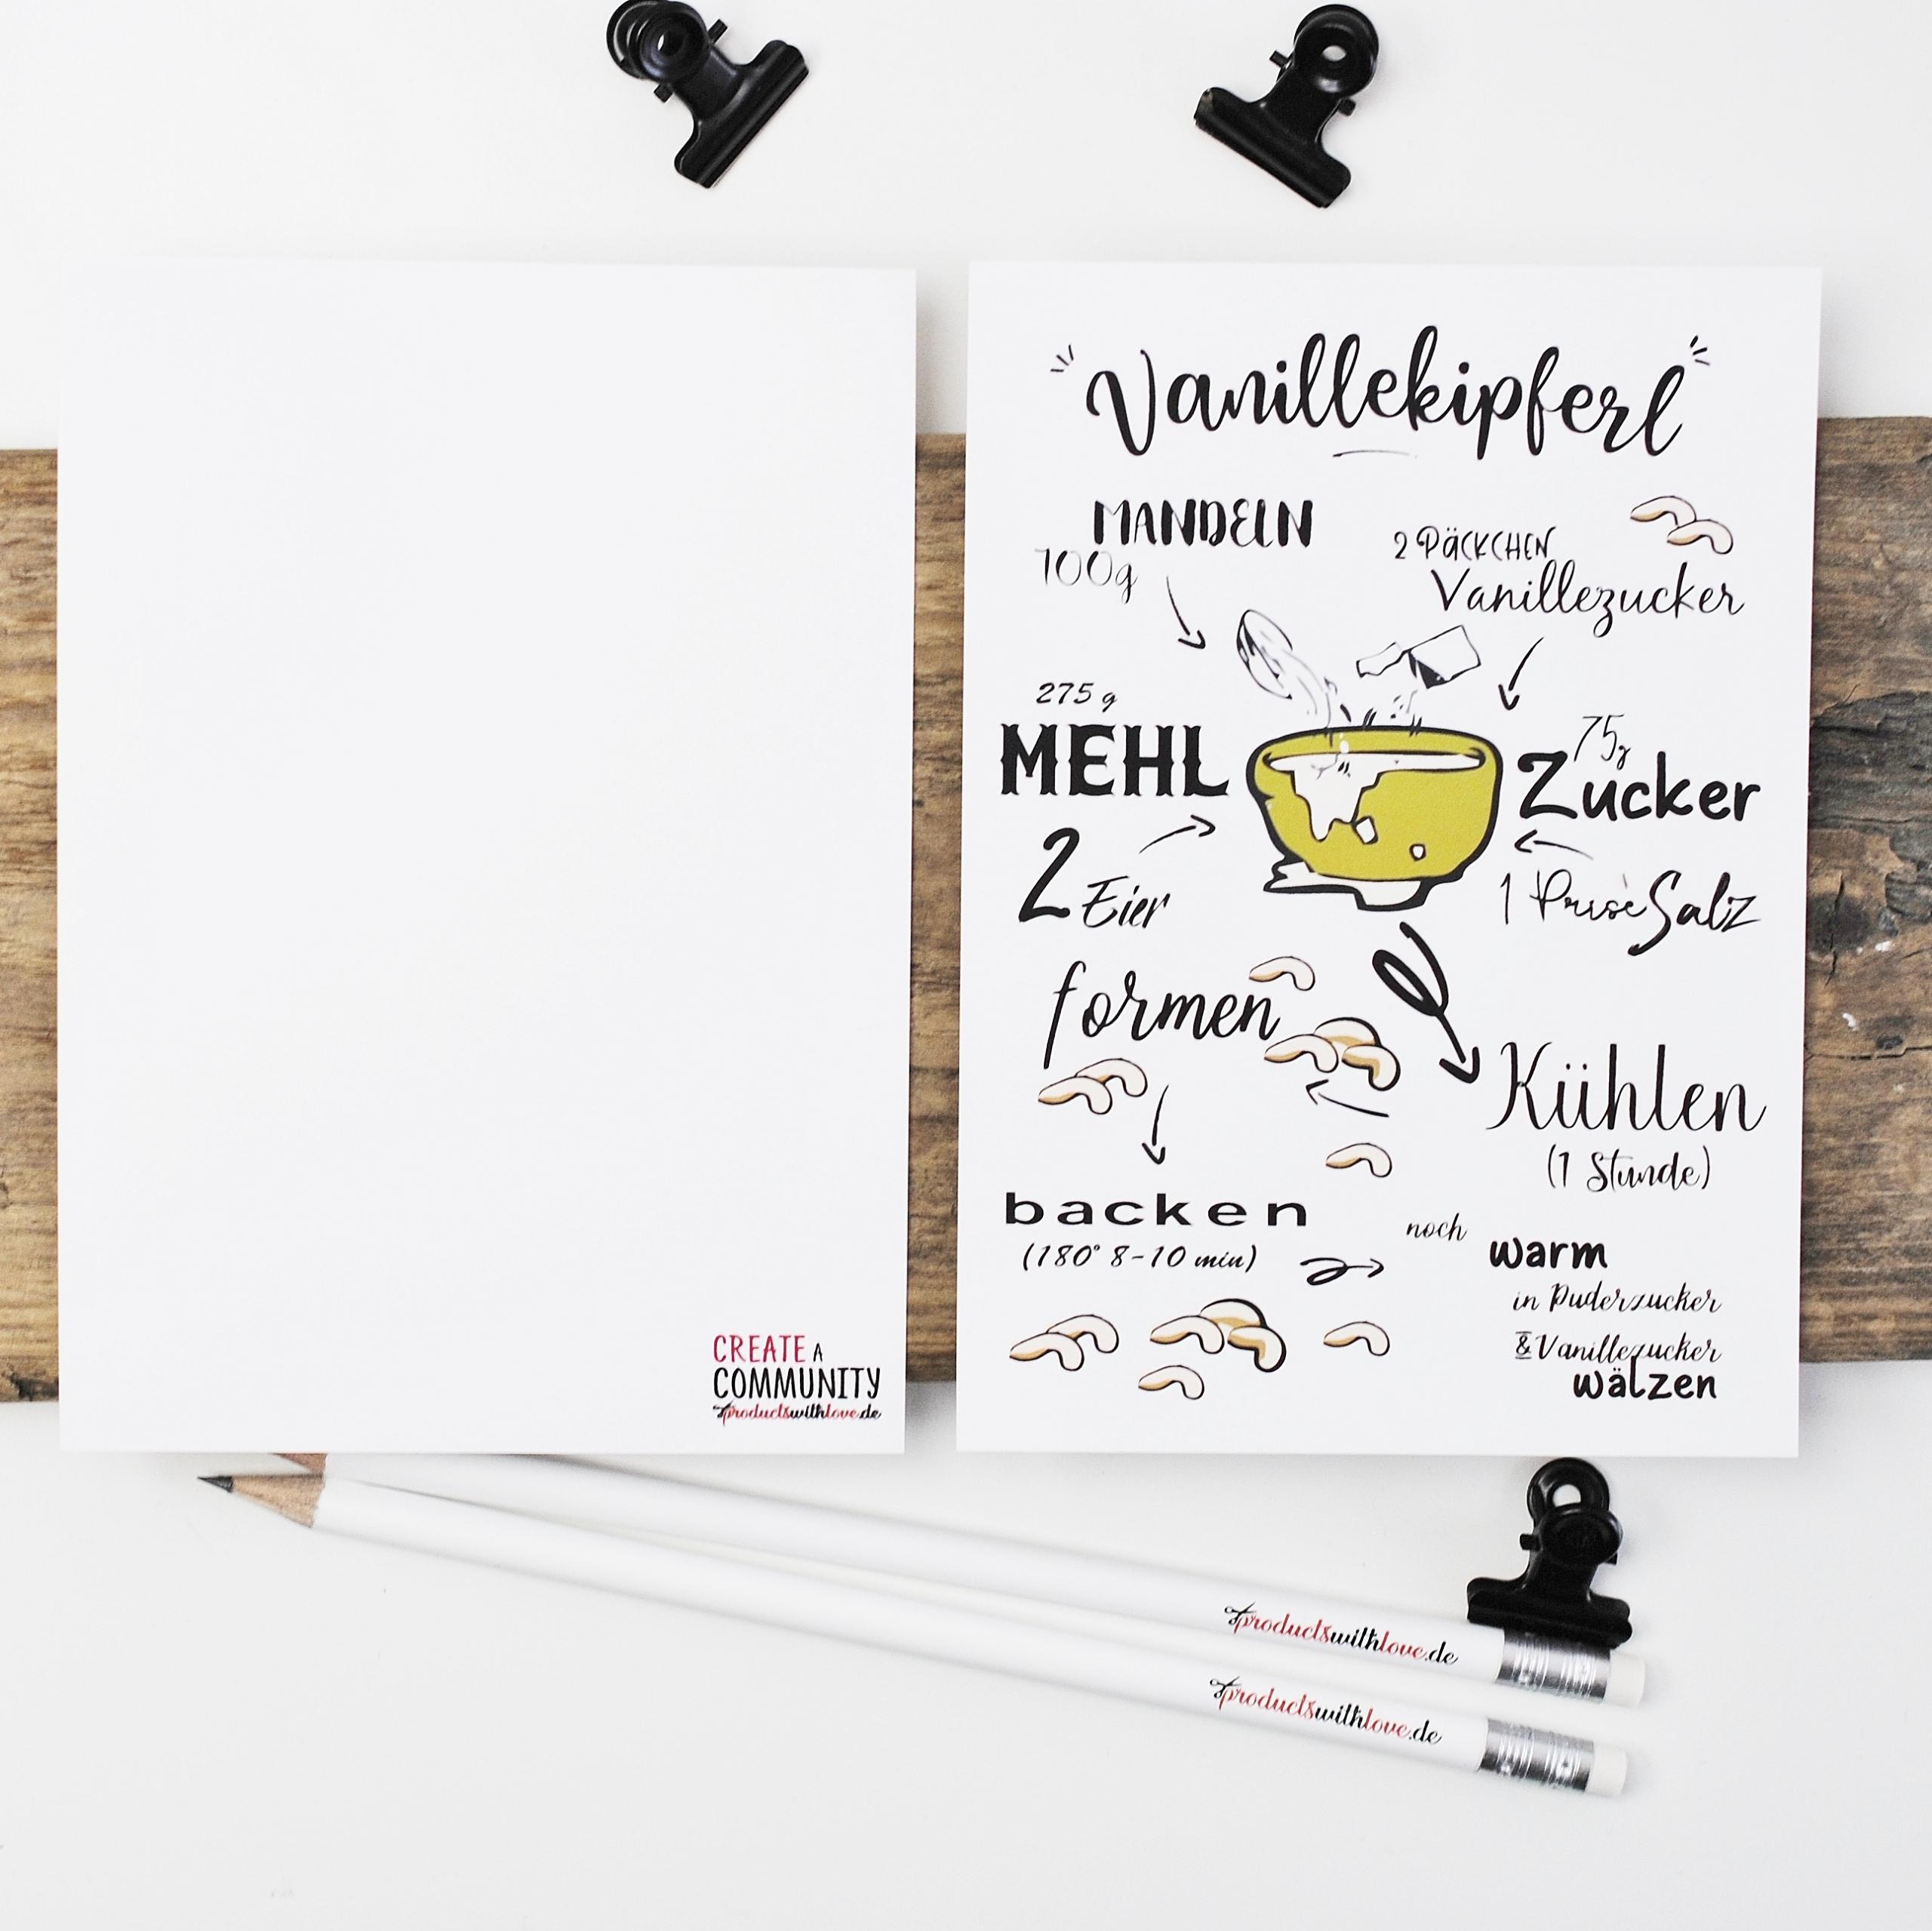 Vanillekipferl
MANDELN
100g
2 PäCKCHEN
Vanillezucker
275 g
MEHL
75g
Zucker
2 Eier
1 Prise Salz
formen
Kühlen
(1 Stunde)
backen
(180° 8-10 min)
noch warm
in Puderzucker
& Vanillezucker
wälzen
CREATE A
COMMUNITY
productswithlove.de
productswithlove.de
productswithlove.de